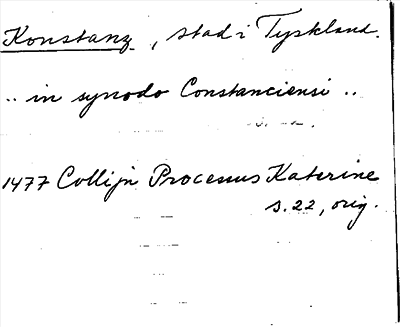 Konstanz, stad i Tyskland.
.. in synodo Constanciensi ..
1477 Collijn Processus Katerine
s. 22, orig.